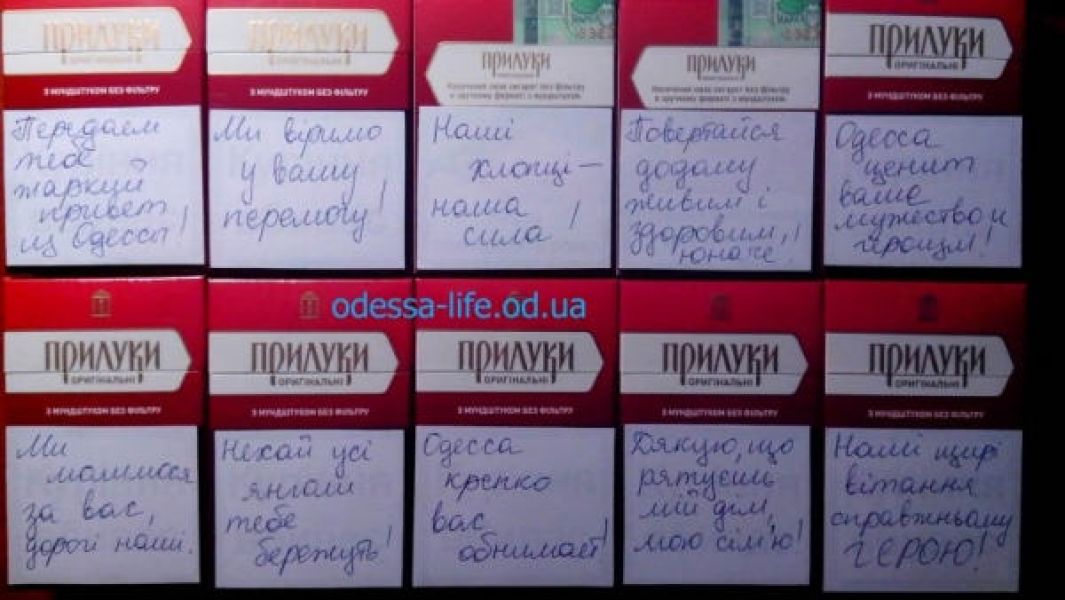 ПРИЛУКИ
ОРИГІНАЛЬНІ
З МУНДШТУКОМ БЕЗ ФІЛЬТРУ
Передаем
тебе
жаркий
привет
из Одессы!
ПРИЛУКИ
ОРИГІНАЛЬНІ
З МУНДШТУКОМ БЕЗ ФІЛЬТРУ
Ми віримо
у вашу
перемогу!
ПРИЛУКИ
Наші
хлопці –
наша
сила!
ПРИЛУКИ
Повертайся
додому
живим і
здоровим,
юначе!
ПРИЛУКИ
ОРИГІНАЛЬНІ
З МУНДШТУКОМ БЕЗ ФІЛЬТРУ
Одесса
ценит
ваше
мужество и
героизм!
odessa-life.od.ua
ПРИЛУКИ
ОРИГІНАЛЬНІ
З МУНДШТУКОМ БЕЗ ФІЛЬТРУ
Ми
молимося
за вас,
дорогі наші.
ПРИЛУКИ
ОРИГІНАЛЬНІ
З МУНДШТУКОМ БЕЗ ФІЛЬТРУ
Нехай усі
янголи
тебе
бережуть!
ПРИЛУКИ
ОРИГІНАЛЬНІ
З МУНДШТУКОМ БЕЗ ФІЛЬТРУ
Одесса
крепко
вас
обнимает!
ПРИЛУКИ
ОРИГІНАЛЬНІ
З МУНДШТУКОМ БЕЗ ФІЛЬТРУ
Дякую, що
рятуєш
мій дім,
мою сім'ю!
ПРИЛУКИ
ОРИГІНАЛЬНІ
З МУНДШТУКОМ БЕЗ ФІЛЬТРУ
Наші щирі
вітання
справжньому
ГЕРОЮ!